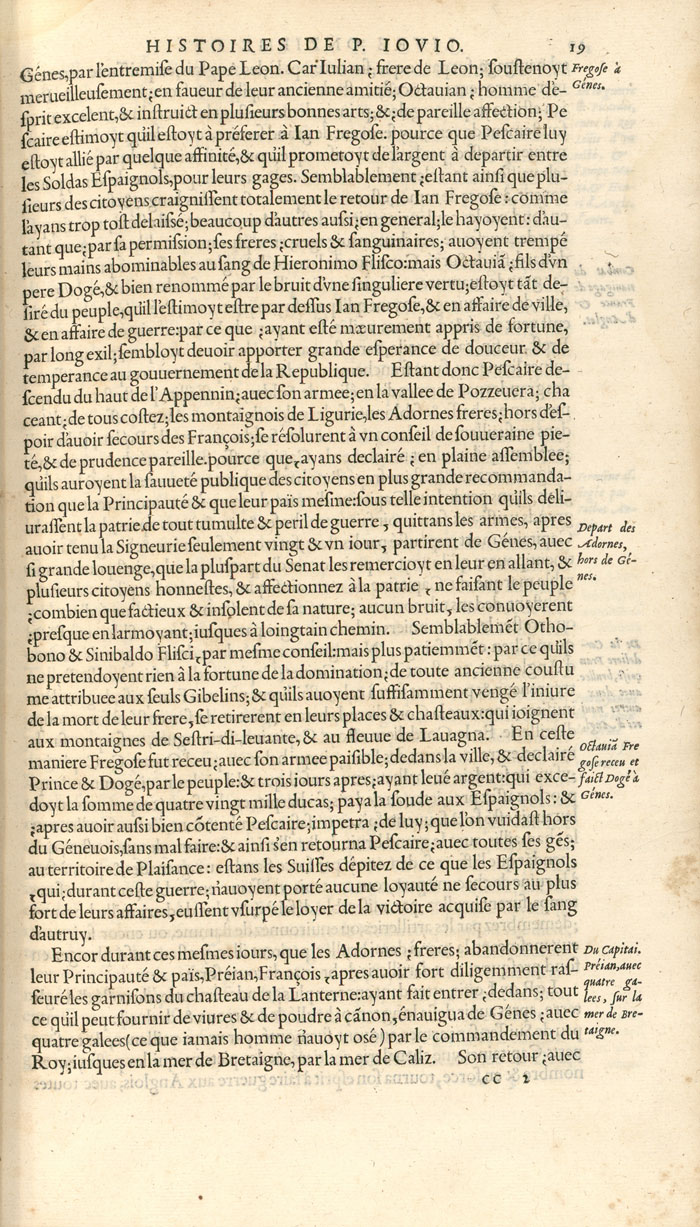 HISTOIRES DE P. IOVIO. 19
Génes, par l'entremise du Pape Leon. Car Iulian ; frere de Leon; soustenoyt
merueilleusement; en faueur de leur ancienne amitié; Octauian ; homme d'e-
sprit excelent, & instruict en plusieurs bonnes arts; &; de pareille affection; Pe
scaire estimoyt qu'il estoyt à préferer à Ian Fregose. pource que Pescaire luy
estoyt allié par quelque affinité, & qu'il prometoyt de l'argent à departir entre
les Soldas Espaignols, pour leurs gages. Semblablement ; estant ainsi que plu-
sieurs des citoyens craignissent totalement le retour de Ian Fregose : comme
l'ayans trop tost delaissé; beaucoup d'autres aussi; en general; le hayoyent : d'au-
tant que; par sa permission; ses freres ; cruels & sanguinaires; auoyent trempé
leurs mains abominables au sang de Hieronimo Flisco: mais Octauiã ; fils d'vn
pere Dogé, & bien renommé par le bruit d'vne singuliere vertu; estoyt tãt de-
siré du peuple, qu'il l'estimoyt estre par dessus Ian Fregose, & en affaire de ville,
& en affaire de guerre: par ce que ; ayant esté mœurement appris de fortune,
par long exil; sembloyt deuoir apporter grande esperance de douceur & de
temperance au gouuernement de la Republique. Estant donc Pescaire de-
scendu du haut de l'Appennin; auec son armee; en la vallee de Pozzeuera; cha
ceant ; de tous costez; les montaignois de Ligurie, les Adornes freres; hors d'es-
poir d'auoir secours des François; se résolurent à vn conseil de souueraine pie-
té, & de prudence pareille. pource que, ayans declairé ; en plaine assemblee;
qu'ils auroyent la sauueté publique des citoyens en plus grande recommanda-
tion que la Principauté & que leur païs mesme: sous telle intention qu'ils deli-
urassent la patrie de tout tumulte & peril de guerre , quittans les armes, apres
auoir tenu la Signeurie seulement vingt & vn iour, partirent de Génes, auec
si grande louenge, que la pluspart du Senat les remercioyt en leur en allant, &
plusieurs citoyens honnestes, & affectionnez à la patrie , ne faisant le peuple
; combien que factieux & insolent de sa nature; aucun bruit, les conuoyerent
; presque en larmoyant; iusques à loingtain chemin. Semblablemẽt Otho-
bono & Sinibaldo Flisci, par mesme conseil: mais plus patiemmẽt : par ce qu'ils
ne pretendoyent rien à la fortune de la domination; de toute ancienne coustu
me attribuee aux seuls Gibelins; & qu'ils auoyent suffisamment vengé l'iniure
de la mort de leur frere, se retirerent en leurs places & chasteaux: qui ioignent
aux montaignes de Sestri-di-leuante, & au fleuue de Lauagna. En ceste
maniere Fregose fut receu; auec son armee paisible; dedans la ville, & declairé
Prince & Dogé, par le peuple: & trois iours apres; ayant leué argent: qui exce-
doyt la somme de quatre vingt mille ducas; paya la soude aux Espaignols : &
; apres auoir aussi bien cõtenté Pescaire; impetra ; de luy; que l'on vuidast hors
du Géneuois, sans mal faire: & ainsi s'en retourna Pescaire; auec toutes ses gẽs;
au territoire de Plaisance : estans les Suisses dépitez de ce que les Espaignols
, qui; durant ceste guerre; n'auoyent porté aucune loyauté ne secours au plus
fort de leurs affaires, eussent vsurpé le loyer de la victoire acquise par le sang
d'autruy.
Encor durant ces mesmes iours, que les Adornes ; freres; abandonnerent
leur Principauté & païs, Préian, François , apres auoir fort diligemment ras-
seuré les garnisons du chasteau de la Lanterne: ayant fait entrer ; dedans; tout
ce qu'il peut fournir de viures & de poudre à cãnon, énauigua de Génes ; auec
quatre galees (ce que iamais homme n'auoyt osé) par le commandement du
Roy; iusques en la mer de Bretaigne, par la mer de Caliz. Son retour ; auec
CC 2
Fregose à
Génes.
Depart des
Adornes,
hors de Gé-
nes.
Octauiã Fre
gose receu et
faict Dogé à
Génes.
Du Capitai.
Préian, auec
quatre ga-
lees, sur la
mer de Bre-
taigne.